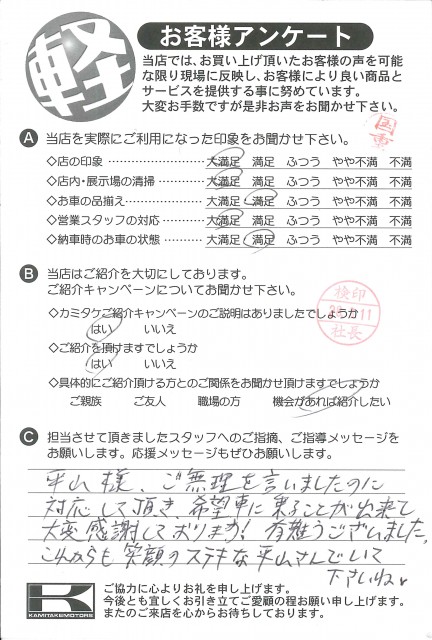 軽
お客様アンケート
当店では、お買い上げ頂いたお客様の声を可能
な限り現場に反映し、お客様により良い商品と
サービスを提供する事に努めています。
大変お手数ですが是非お声をお聞かせ下さい。
A 当店を実際にご利用になった印象をお聞かせ下さい。
◇店の印象 大満足 満足 ふつう やや不満 不満
◇店内・展示場の清掃 大満足 満足 ふつう やや不満 不満
◇お車の品揃え 大満足 満足 ふつう やや不満 不満
◇営業スタッフの対応 大満足 満足 ふつう やや不満 不満
◇納車時のお車の状態 大満足 満足 ふつう やや不満 不満
B 当店はご紹介を大切にしております。
ご紹介キャンペーンについてお聞かせ下さい。
検印
社長
◇カミタケご紹介キャンペーンのご説明はありましたでしょうか
はい いいえ
◇ご紹介を頂けますでしょうか
はい いいえ
◇具体的にご紹介頂ける方とのご関係をお聞かせ頂けますでしょうか
ご親族 ご友人 職場の方 機会があれば紹介したい
C 担当させて頂きましたスタッフへのご指摘、ご指導メッセージを
お願いします。応援メッセージもぜひお願いします。
平山様、ご無理を言いましたのに
対応して頂き、希望車に乗ることが出来て
大変感謝しております! 有難うございました。
これからも笑顔のステキな平山さんでいて
下さいね
K
KAMITAKEMOTORS
ご協力に心よりお礼を申し上げます。
今後とも宜しくお引き立てご愛顧の程お願い申し上げます。
またのご来店を心からお待ちしております。